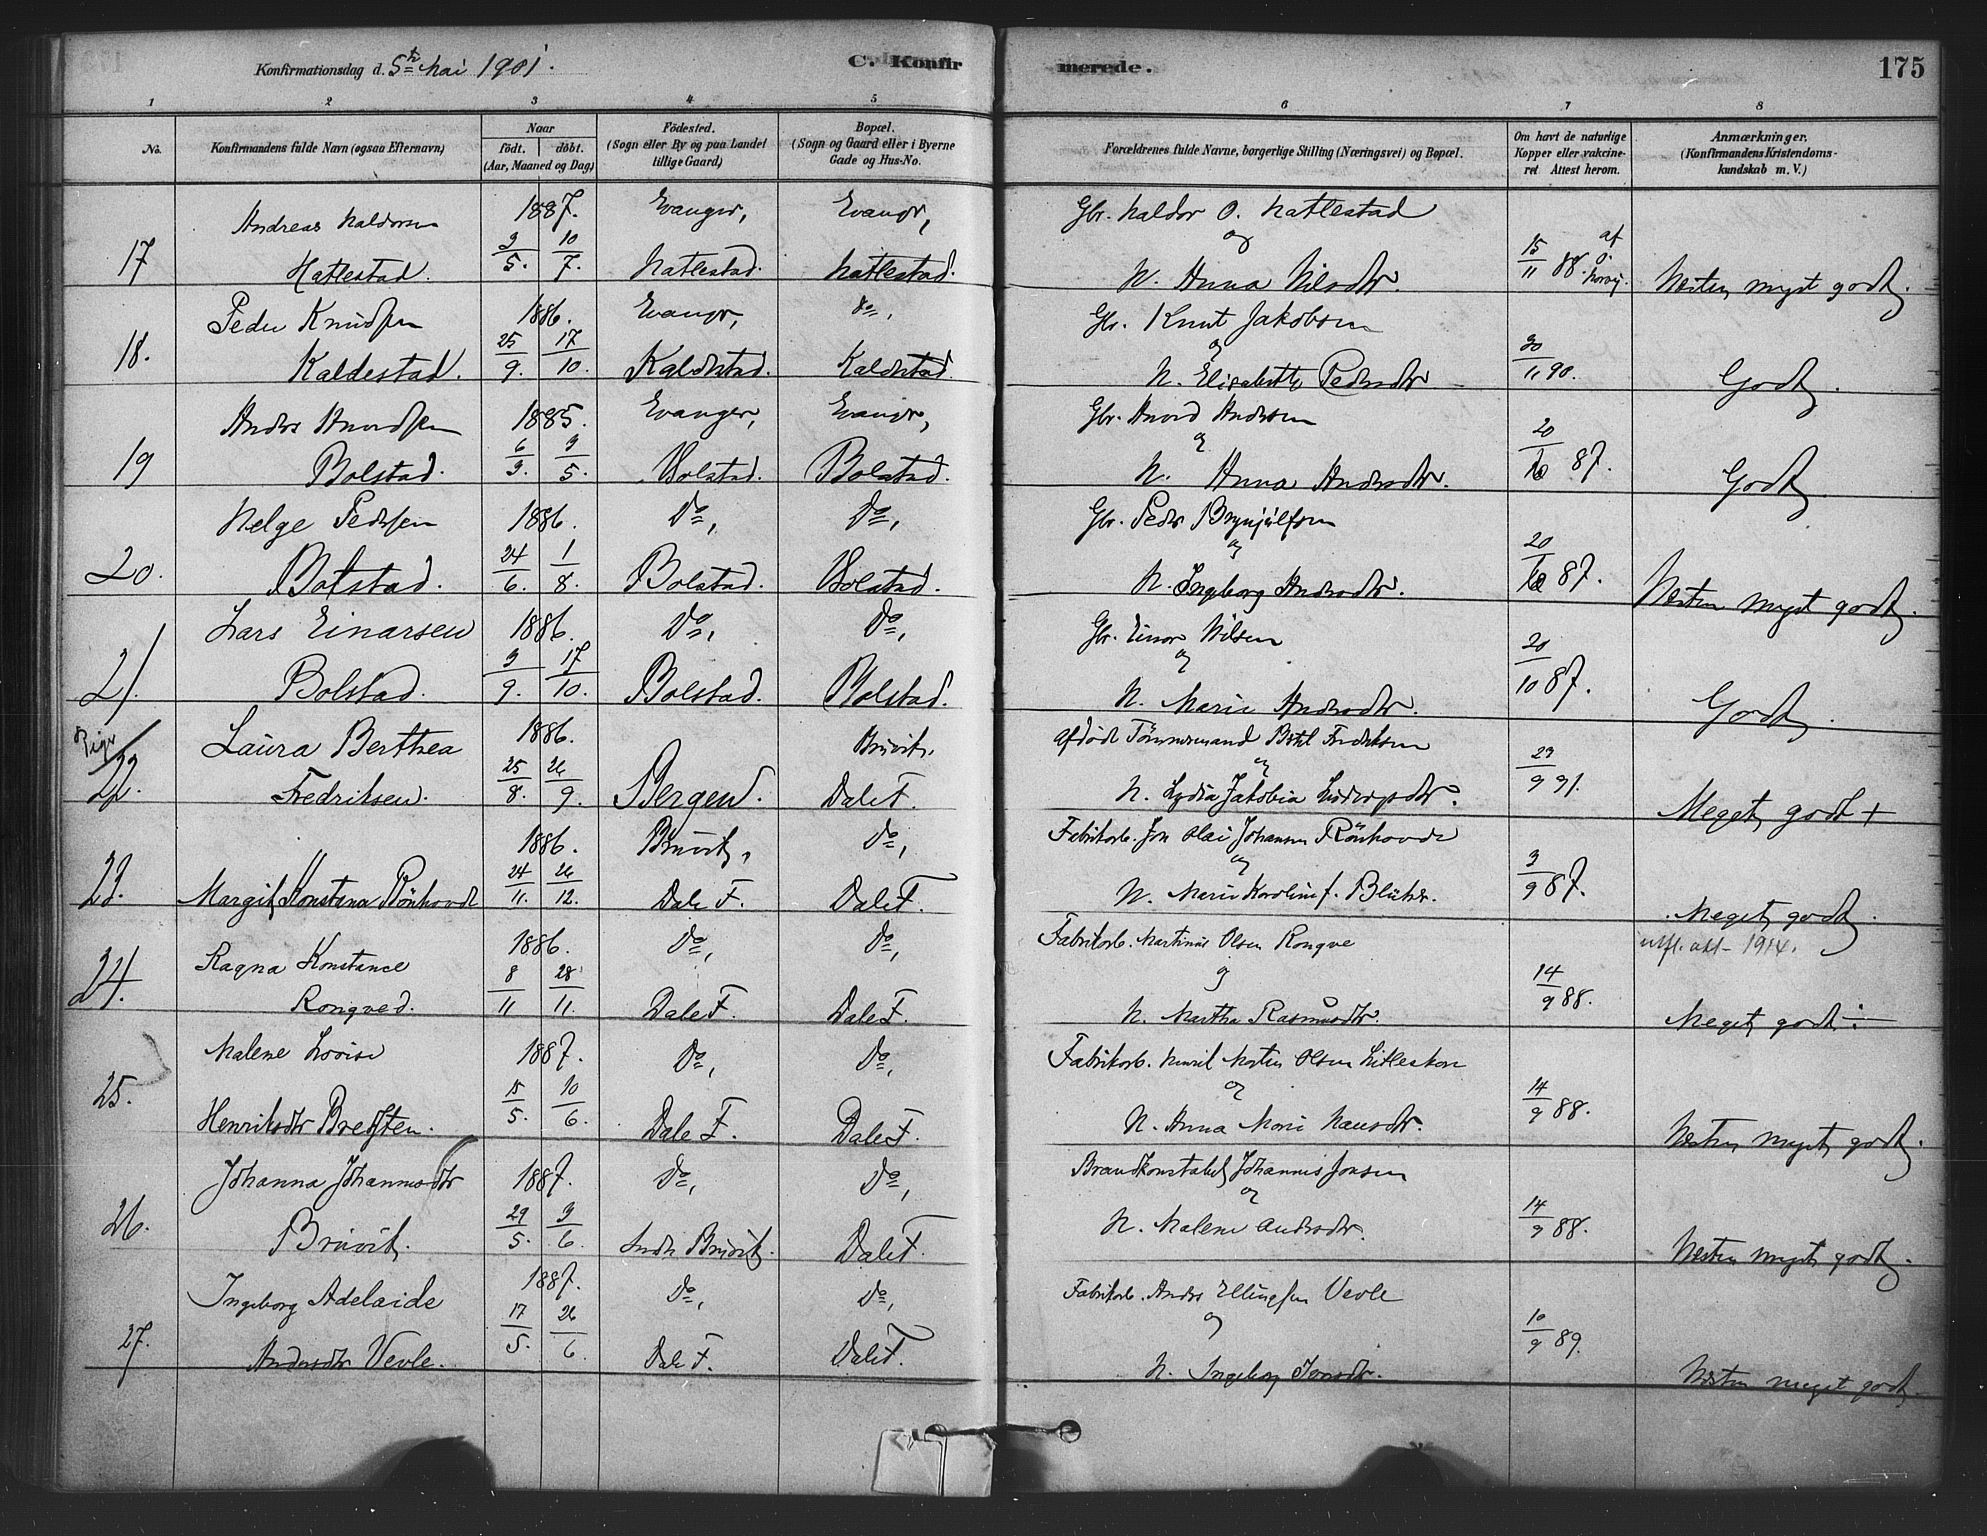 Konfirmationsdag d. 5te Mai 1901.
C. Konfirmerede.
175
1 2 3 4 5 6 7 8
No.
Konfirmandens fulde Navn (ogsaa Efternavn)
Naar
födt. döbt.
(Aar, Maaned og Dag)
Födested.
(Sogn eller By og paa Landet
tillige Gaard)
Bopæl.
(Sogn og Gaard eller i Byerne
Gade og Hus-No.
Forældrenes fulde Navne, borgerlige Stilling (Næringsvei) og Bopæl.
Om havt de naturlige
Kopper eller vakcine-
ret Attest herom.
Anmærkninger.
(Konfirmandens Kristendoms-
kundskab m. V.)
Andreas Haldorsen 1887. Evanger, Evangr, Gbr. Haldor O. Hatlestad
og
17 Hatlestad. 3/5. 10/7. Hatlestad. Hatlestad. H. Anna Nilsdtr. 15/11 88. af Næsten meget godt.
Peder Knudsen 1886. Evangr, Do, Gbr. Knut Jakobsen
og
18. Kaldestad. 25/9. 17/10. Kaldestad. Kaldestad. H. Elisabeth Pedersdtr 30/11 90. Godt.
Anders Knudsen 1885. Evanger, Evangr, Gbr. Andersen
og
19 Bolstad. 6/3. 3/5. Bolstad. Bolstad. H. Anna Andersdtr. 20/10 87. Godt.
Helge Pedersen 1886. Do, Do, Gbr. Peder Brynjulfsen
og
20. Bolstad. 24/6. 1/8. Bolstad. Bolstad. H. Ingeborg Andersdtr. 20/10 87. Næsten meget godt.
Lars Einarsen 1886. Do, Do, Gbr. Einar Nilsen
og
21. Bolstad. 3/9. 17/10. Bolstad. Bolstad. H. Marie Andersdtr. 20/10 87. Godt.
Piger
Laura Berthea 1886. Bruvik, Afdöde Tömmermand Fredriksen
og
22. Fredriksen. 25/8. 26/9. Bergen. Dale F. H. Lydia Jakobia Ludvigsdtr. 23/9 91. Meget godt +
1886. Bruvik, Do, Fabrikarb. Jon Olai Johansen Rönhovde
og
23. Margit Konstana Rönhovde 24/11. 26/12. Dale F. Dale F. H. Marie Karoline f. Blücher. 3/9 87. Meget godt.
Ragna Konstance 1886. Do, Do, Fabrikarb. Martinus Olsen Rongve
og
utfl. att 1914.
24. Rongved. 8/11 28/11. Dale F. Dale F. H. Martha Rasmusdtr. 14/9 88. Meget godt ÷
Malene Lovise 1887. Do, Do, Fabrikarb. Olsen
og
25. Henriksdtr Bredsten. 15/5. 10/6. Dale F. Dale F. H. Anna Marie Hansdtr. 14/9 88. Næsten meget godt.
Johanna Johannesdtr 1887. Do, Do, Brandkonstabel Johannes Jonsen
og
26. Bruvik. 29/5. 9/6. Indre Bruvik. Dale F. H. Malene Andersdtr. 14/9 88. Næsten meget godt.
Ingeborg Adelaide 1887. Do, Do, Fabrikarb. Anders Ellingsen Vevle
og
27. Andersdtr Vevle. 17/5. 26/6. Dale F. Dale F. H. Ingeborg Jonsdtr. 10/9 89. Næsten meget godt